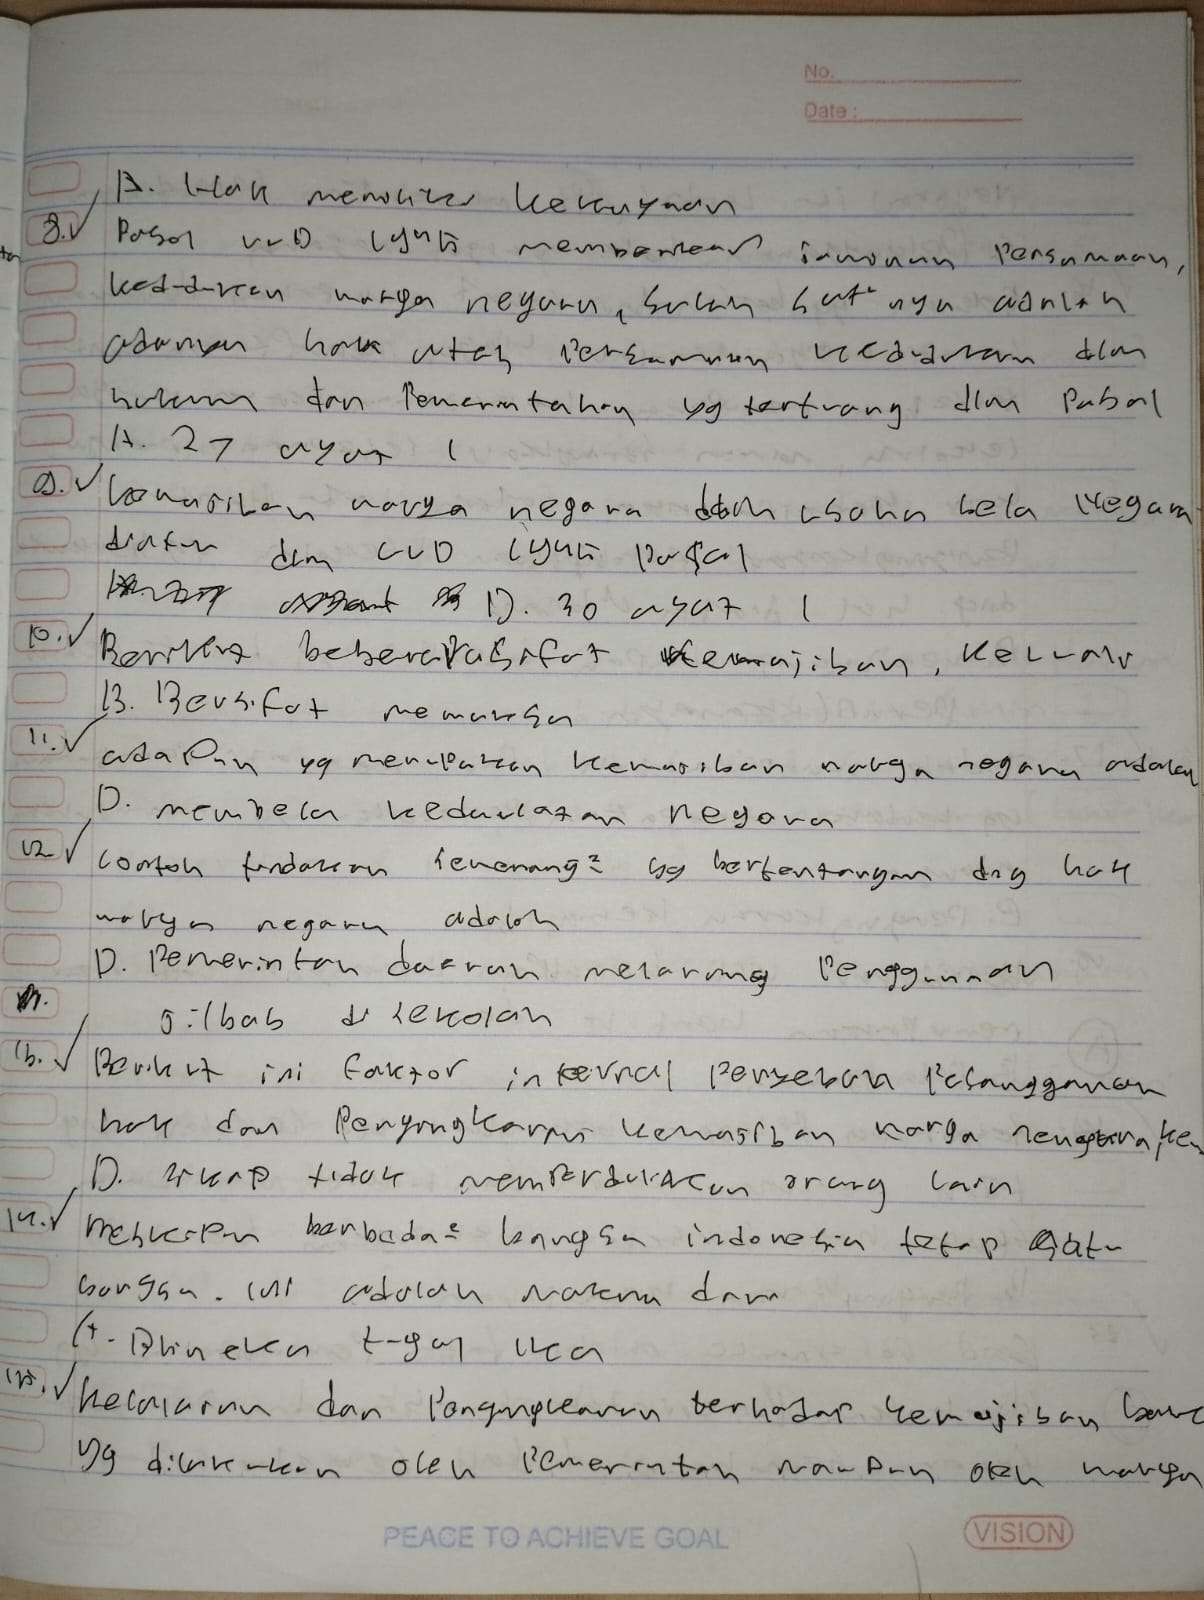 No.
Date :
A. Hak memiliki kekayaan
8. Pasal UUD 1945 memberikan jaminan persamaan,
kedudukan warga negara, salah satu nya adalah
adanya hak atas persamaan kedudukan dlm
hukum dan Pemerintahan yg tertuang dlm Pasal
A. 27 ayat 1
9. kewajiban warga negara dlm usaha bela Negara
diatur dlm UUD 1945 Pasal
D. 30 ayat 1
10. Berikut beberapa sifat kewajiban, kecuali
B. Bersifat memaksa
11. adapun yg merupakan kewajiban warga negara adalah
D. membela kedaulatan negara
12. contoh tindakan sewenang² yg bertentangan dng hak
warga negara adalah
D. Pemerintah daerah melarang Penggunaan
jilbab di sekolah
13. Berikut ini faktor internal penyebab Pelanggaran
hak dan Pengingkaran kewajiban warga negara, kec
D. sikap tidak memperdulikan orang lain
14. meskipun berbeda² bangsa indonesia tetap satu
bangsa. ini adalah makna dari
A. Bhineka tunggal ika
15. kelalaian dan Pengingkaran terhadap kewajiban
yg dilakukan oleh Pemerintah maupun oleh warga
PEACE TO ACHIEVE GOAL
VISION